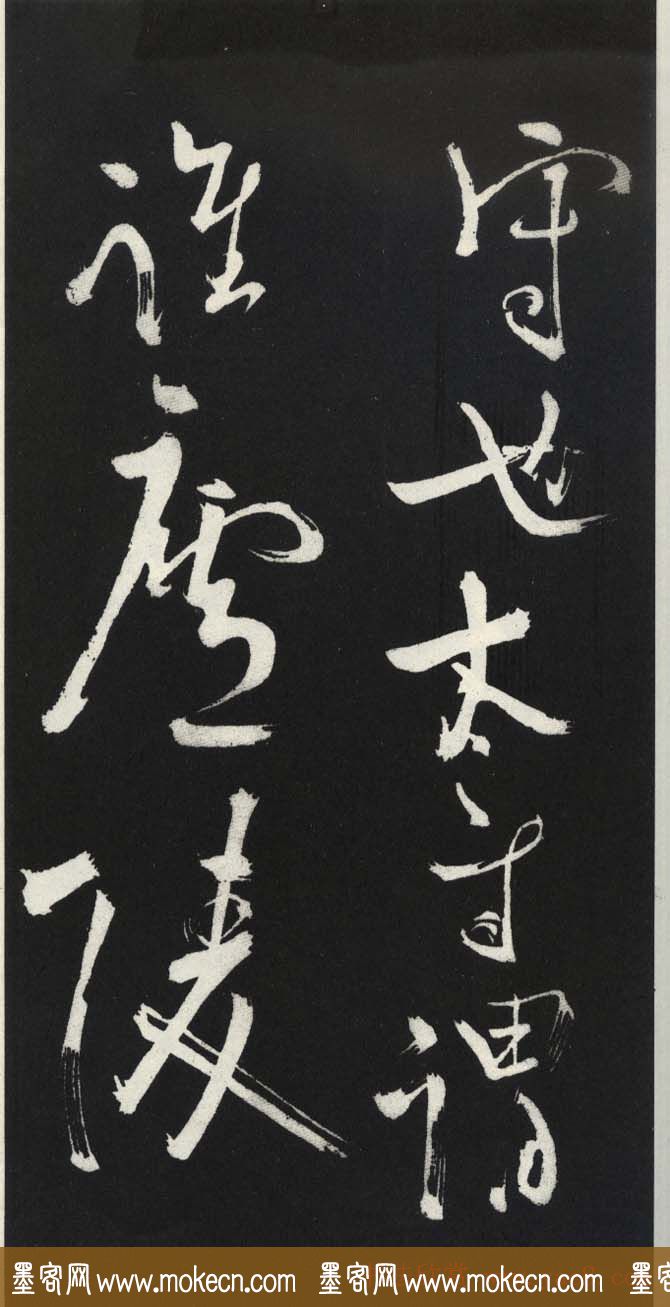 守也太守謂
誰廬陵
墨客网 www.mokecn.com 墨客网 www.mokecn.com 墨客